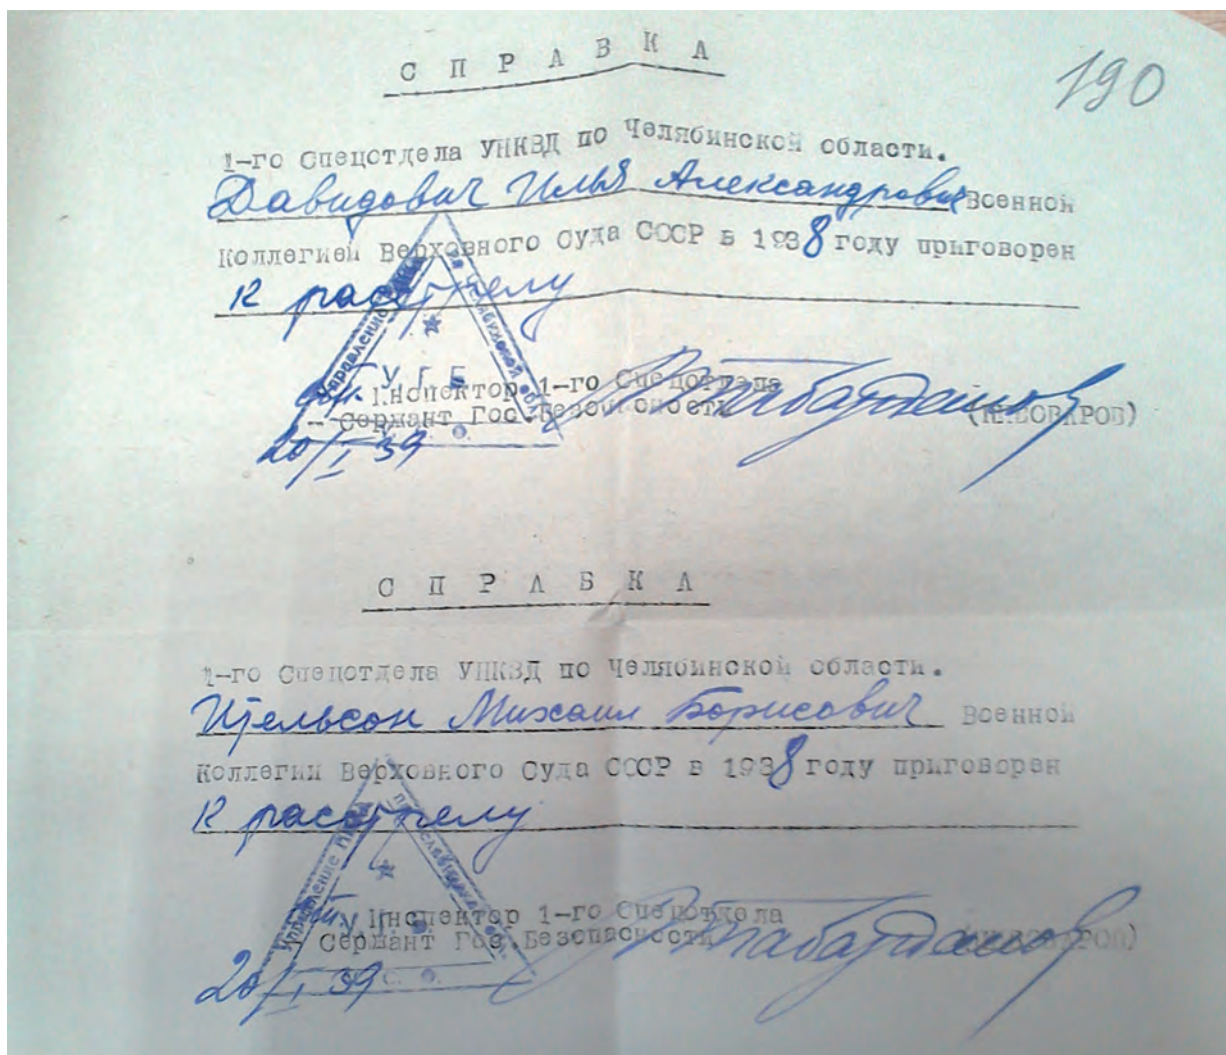 190
С П Р А В К А
1-го Спецотдела УНКВД по Челябинской области.
Давидович Илья Александрович Военной
Коллегией Верховного Суда СССР в 1938 году приговорен
К расстрелу
Управление НКВД по Челябинской обл.
У Г Б
Инспектор 1-го Спецотдела
Сержант Гос.Безопасности
20/I 39
С П Р А В К А
1-го Спецотдела УНКВД по Челябинской области.
Ительсон Михаил Борисович Военной
Коллегии Верховного Суда СССР в 1938 году приговорен
К расстрелу
Управление
У Г Б
Инспектор 1-го Спецотдела
Сержант Гос.Безопасности
20/I 39